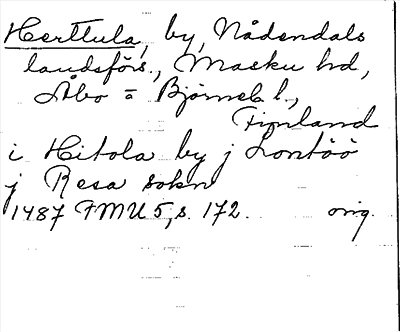 Herttula, by, Nådendals
landsförs., Masku hd,
Åbo = Björneb. l.,
Finland
i Hitola by j Lontöö
j Resa sokn
1487 FMU 5, s. 172. orig.